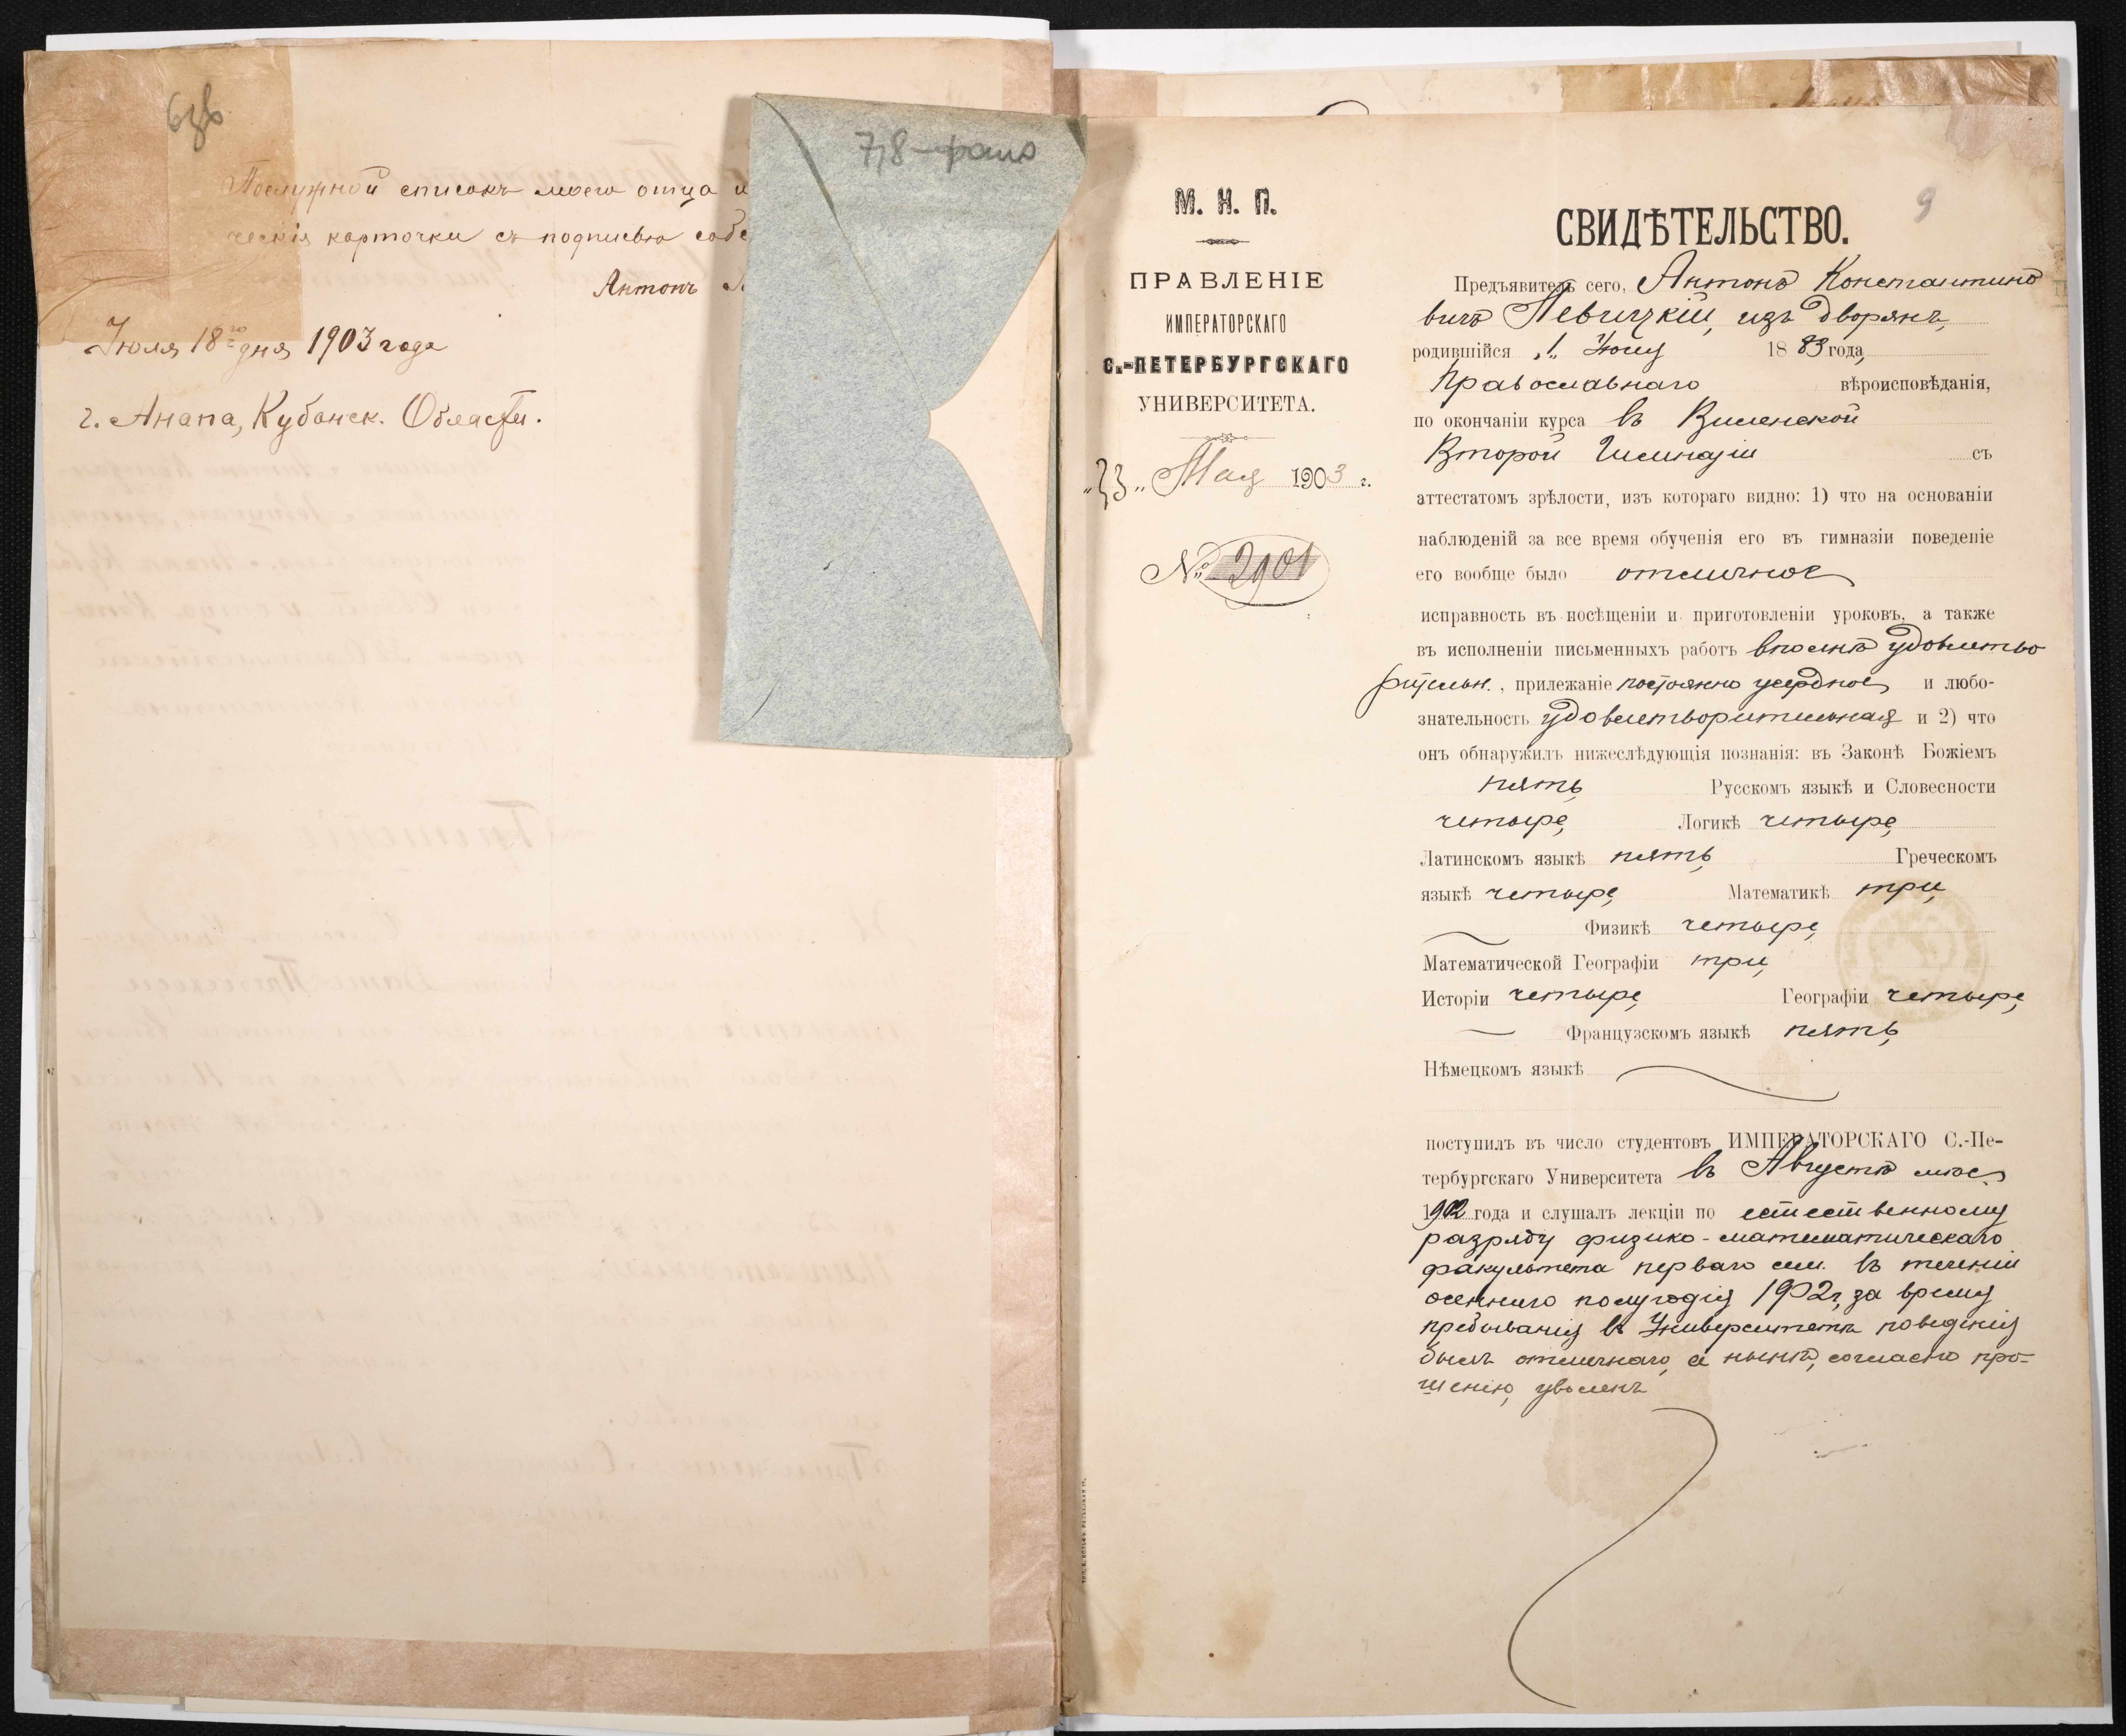 6об
Послужной списокъ моего отца и
ческія карточки съ подписью собс
Антонъ
Іюля 18го дня 1903 года
г. Анапа, Кубанск. Области.
7,8-фото
М. Н. П.
ПРАВЛЕНІЕ
ИМПЕРАТОРСКАГО
С.-ПЕТЕРБУРГСКАГО
УНИВЕРСИТЕТА.
„23„ Мая 1903 г.
№ 2901
9
СВИДѢТЕЛЬСТВО.
Предъявитель сего, Антонъ Константино
вичъ Левицкій, изъ дворянъ,
родившійся „1„ 1883 года,
Православнаго вѣроисповѣданія,
по окончаніи курса въ Виленской
Второй Гимназіи съ
аттестатомъ зрѣлости, изъ котораго видно: 1) что на основаніи
наблюденій за все время обученія его въ гимназіи поведеніе
его вообще было отличное
исправность въ посѣщеніи и приготовленіи уроковъ, а также
въ исполненіи письменныхъ работъ вполнѣ удовлетво
рительн., прилежаніе постоянно усердное и любо-
знательность удовлетворительная и 2) что
онъ обнаружилъ нижеслѣдующія познанія: въ Законѣ Божіемъ
пять, Русскомъ языкѣ и Словесности
четыре, Логикѣ четыре,
Латинскомъ языкѣ пять, Греческомъ
языкѣ четыре, Математикѣ три,
Физикѣ четыре,
Математической Географіи три,
Исторіи четыре, Географіи четыре,
Французскомъ языкѣ пять,
Нѣмецкомъ языкѣ
поступилъ въ число студентовъ ИМПЕРАТОРСКАГО С.-Пе-
тербургскаго Университета въ Августѣ мѣс.
1902 года и слушалъ лекціи по естественному
разряду физико-математическаго
факультета перваго сем. въ теченіи
осенняго полугодія 1902 г., за время
пребыванія въ Университетѣ поведенія
былъ отличнаго, а нынѣ, согласно про-
шенію, уволенъ